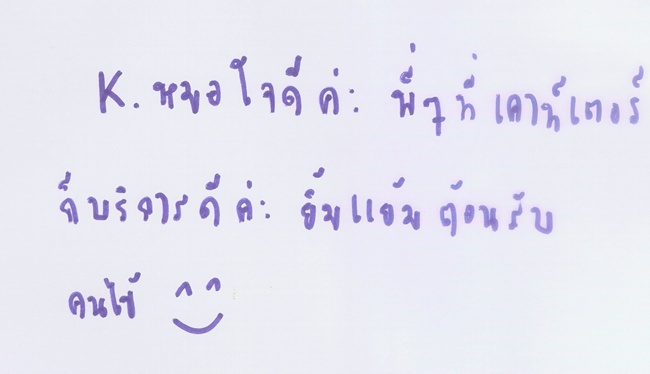 K. หมอใจดีค่ะ พี่ๆที่เคาน์เตอร์
ก็บริการดีค่ะ ยิ้มแย้มต้อนรับ
คนไข้